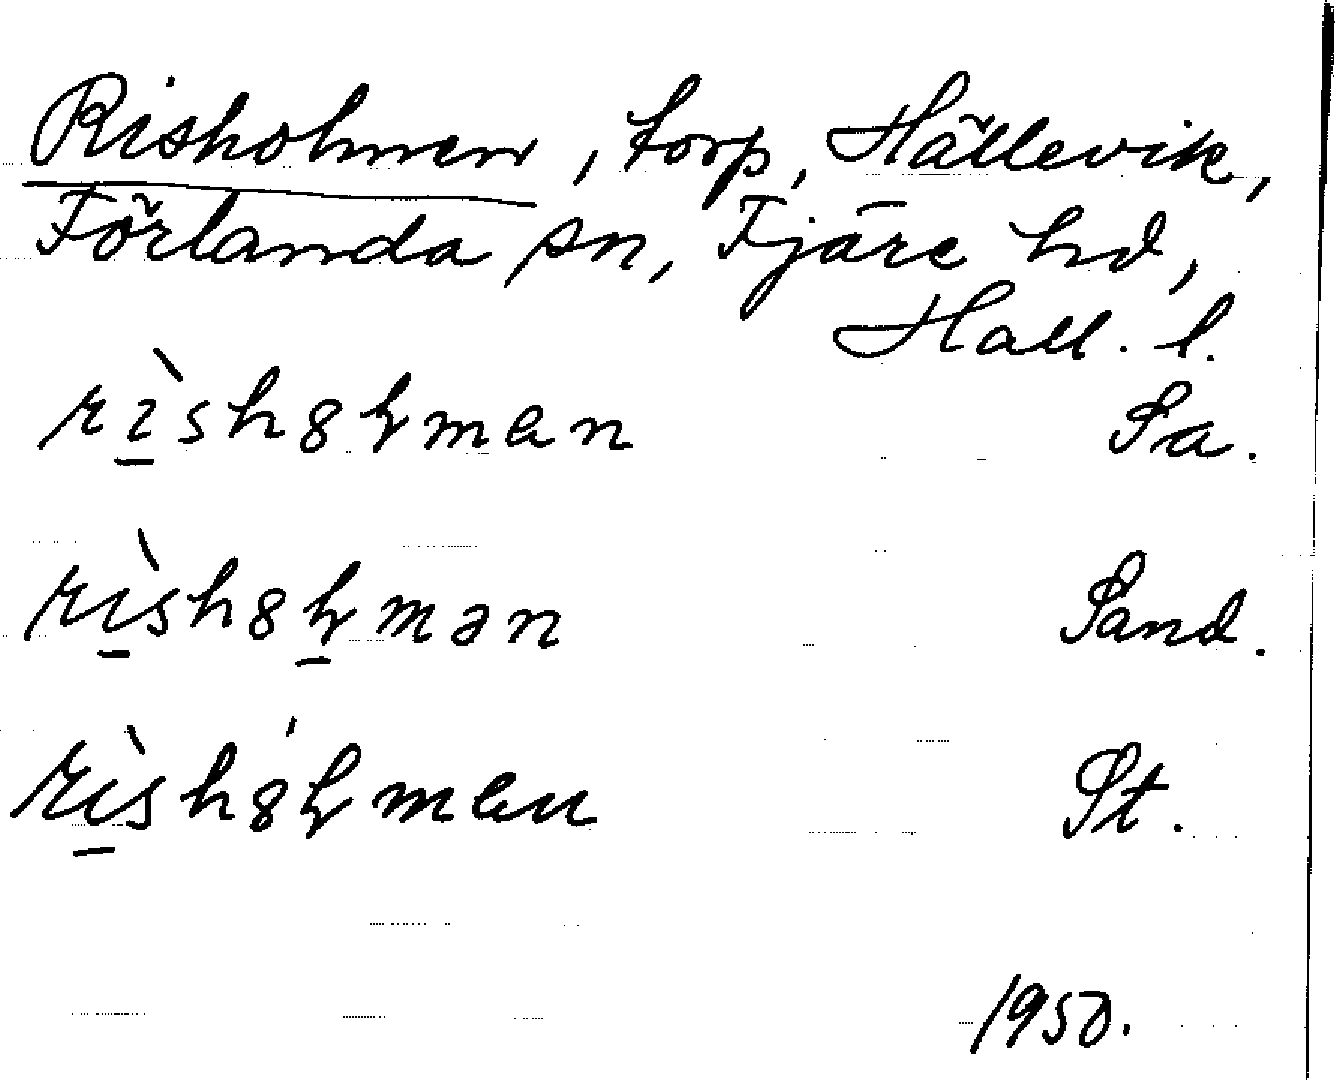 Risholmen, torp, Hällevik,
Förlanda sn, Fjäre hd,
Hall. l.
rìshȣɫmen Sa.
rìshȣɫmən Sand.
rìshȣ́ɫmen St.
1950.